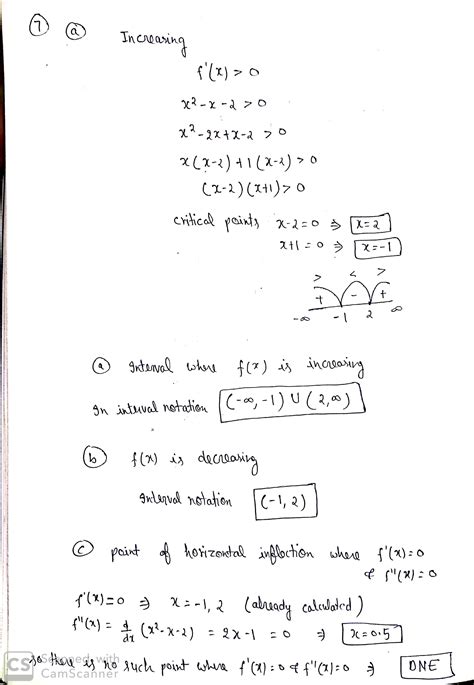 ⑦ ⓐ Increasing
f'(x) > 0
x² - x - 2 > 0
x² - 2x + x - 2 > 0
x(x-2) + 1(x-2) > 0
(x-2)(x+1) > 0
critical points x-2=0 ⇒ x=2
x+1=0 ⇒ x=-1
> < >
+ - +
-∞ -1 2 ∞
ⓐ Interval where f(x) is increasing
In interval notation (-∞, -1) U (2, ∞)
ⓑ f(x) is decreasing
Interval notation (-1, 2)
ⓒ point of horizontal inflection where f'(x)=0
& f''(x)=0
f'(x)=0 ⇒ x = -1, 2 (already calculated)
f''(x) = d/dx (x²-x-2) = 2x-1 = 0 ⇒ x=0.5
so there is no such point where f'(x)=0 & f''(x)=0 ⇒ DNE
CS Scanned with
CamScanner